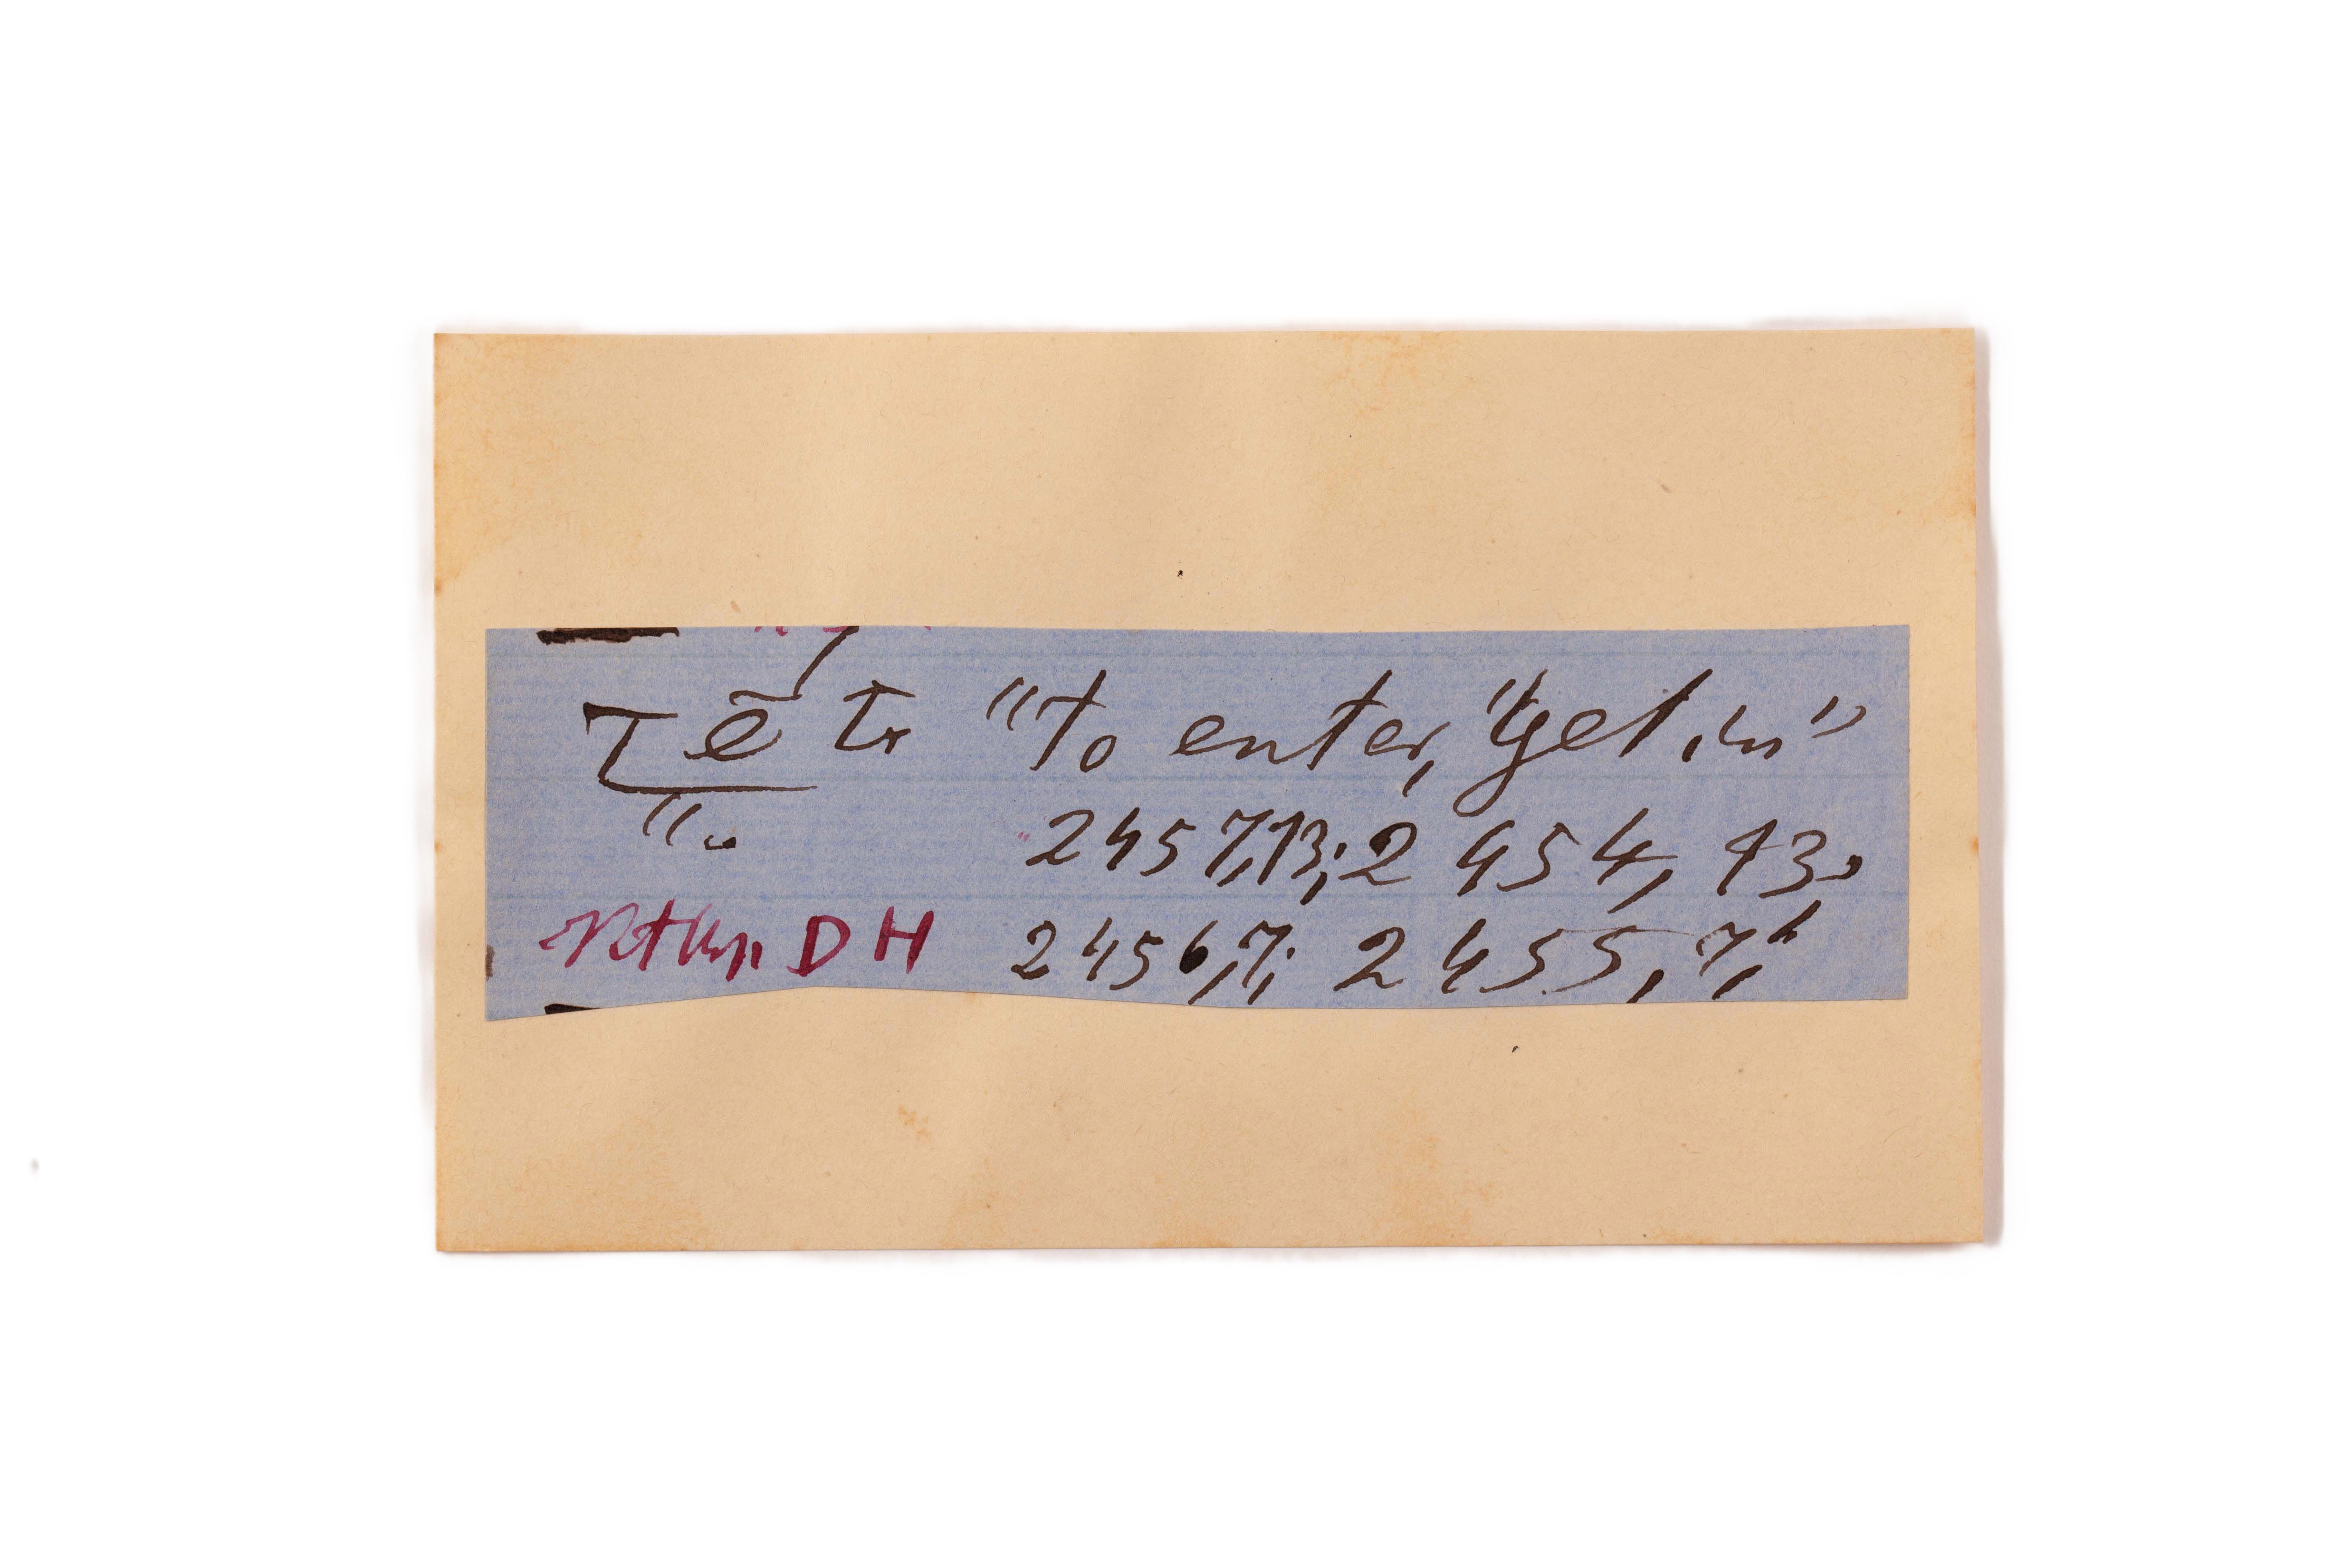 Tē tr "to enter, "get in"
2457,13; 2454, 13,
DH 2456,7; 2455, 7,6